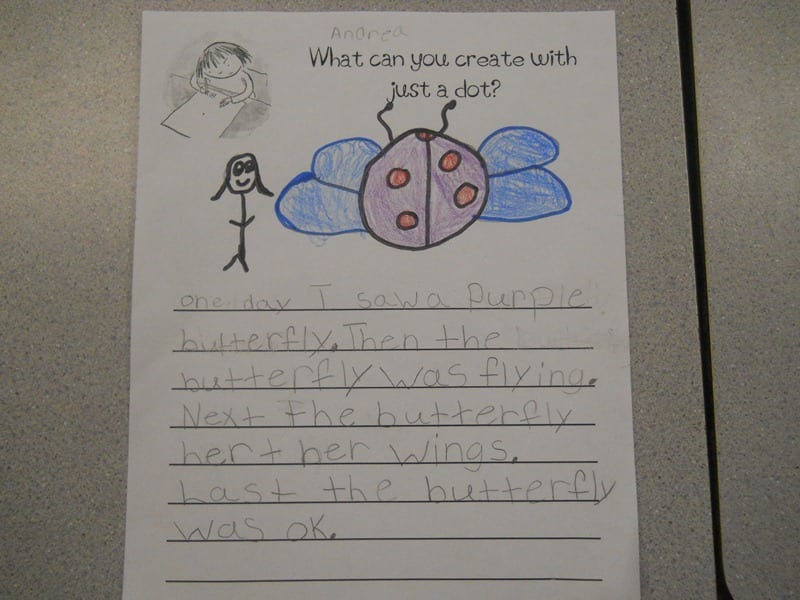 Andrea
What can you create with
just a dot?
one day I saw a Purple
butterfly. Then the
butterfly was flying.
Next the butterfly
hert her wings.
Last the butterfly
was ok.